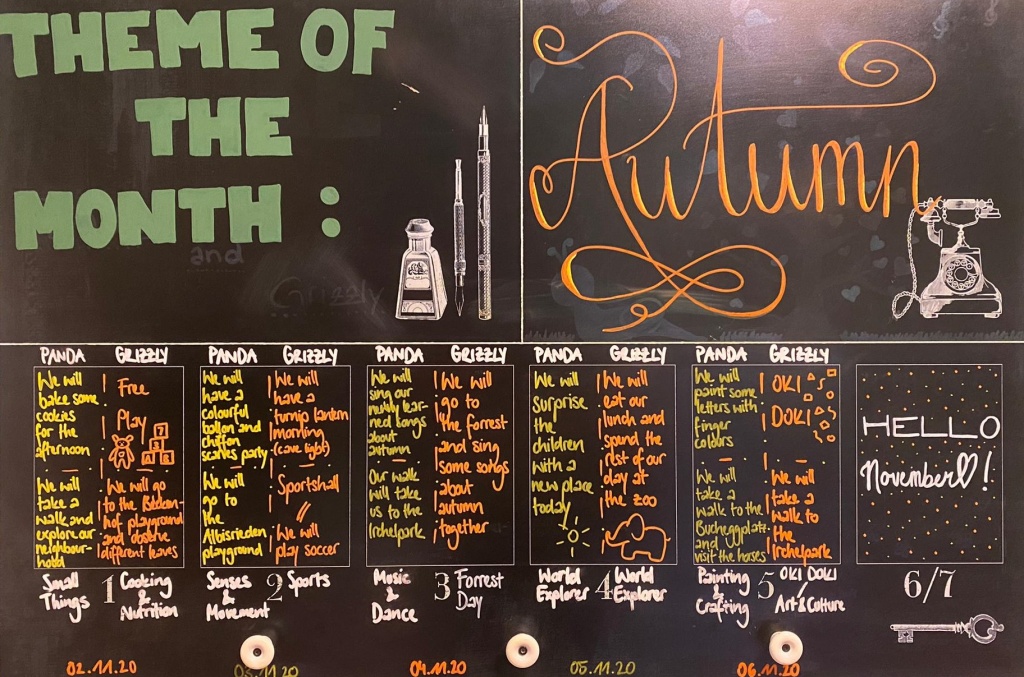 THEME OF
THE
MONTH :
and
Grizzly
Autumn
PANDA
We will
bake some
cookies
for the
afternoon
We will
take a
walk and
explore our
neighbour-
hood
Small
Things
GRIZZLY
Free
Play
We will go
to the Bäcken-
hof playground
and observe
different leaves
Cooking
&
Nutrition
1
PANDA
We will
have a
colourful
ballon and
chiffon
scarves party
We will
go to
the
Albisrieden
playground
Senses
&
Movement
GRIZZLY
We will
have a
turnip lantern
morning
(cave light)
Sportshall
We will
play soccer
Sports
2
PANDA
We will
sing our
newly lear-
ned songs
about
autumn
Our walk
will take
us to the
Irchelpark
Music
&
Dance
GRIZZLY
We will
go to
the forrest
and sing
some songs
about
autumn
together
Forrest
Day
3
PANDA
We will
surprise
the
children
with a
new place
today
World
Explorer
GRIZZLY
We will
eat our
lunch and
spend the
rest of our
day at
the zoo
World
Explorer
4
PANDA
We will
paint some
letters with
finger
colours
We will
take a
walk to the
Bucheggplatz
and
visit the horses
Painting
&
Crafting
GRIZZLY
OKI
DOKI
We will
take a
walk to
the
Irchelpark
OKI DOKI
/
Art & Culture
5
HELLO
November !
6/7
02.11.20
03.11.20
04.11.20
05.11.20
06.11.20